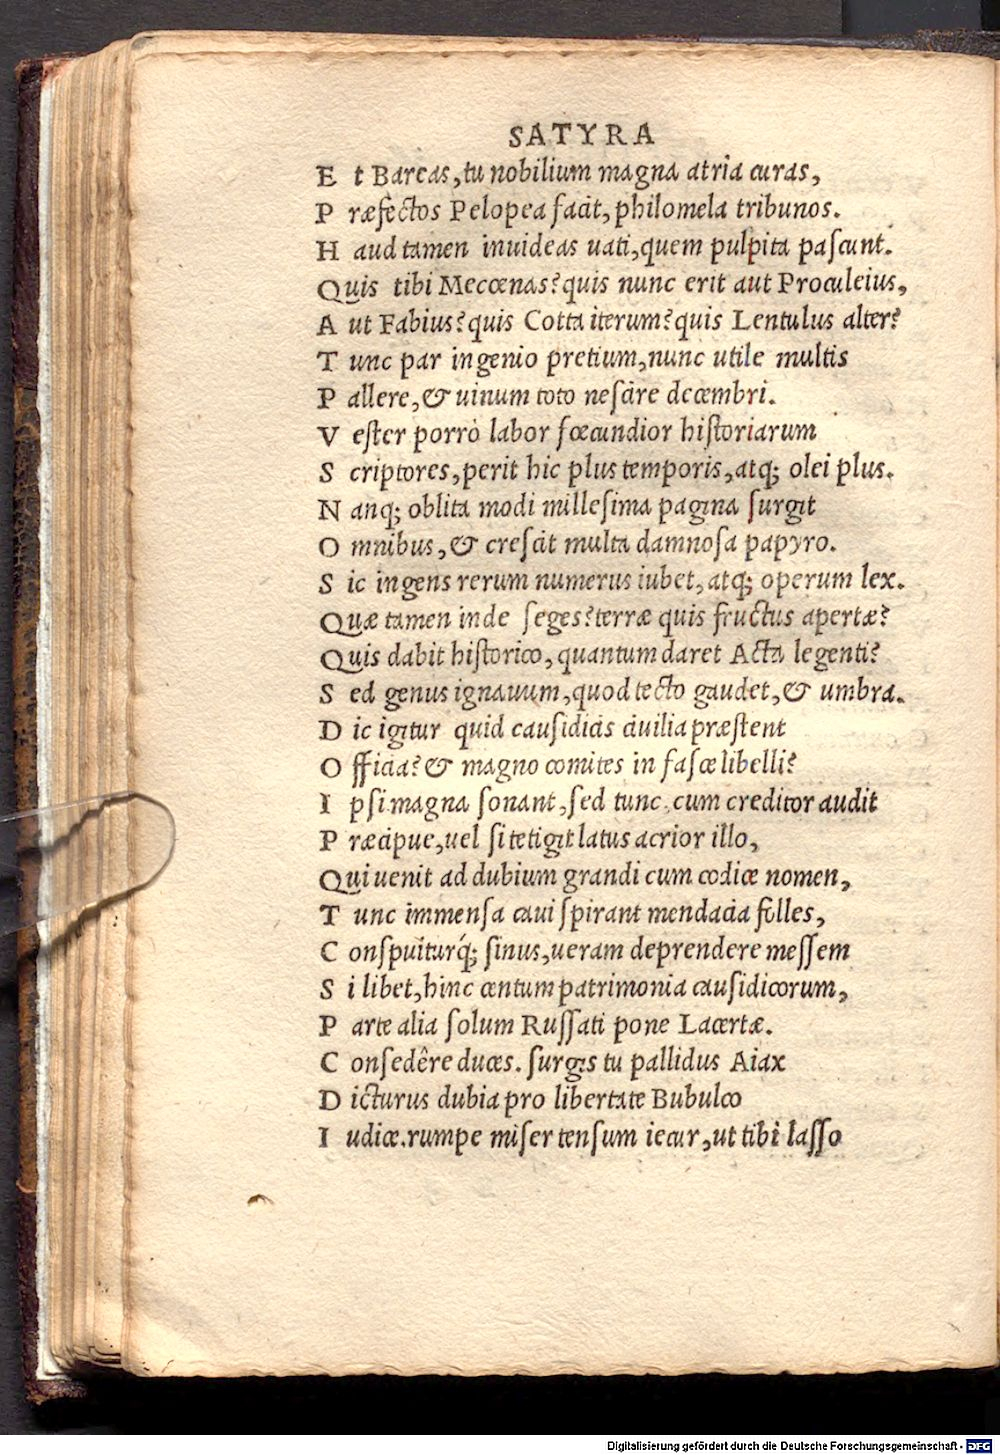 SATYRA
E t Bareas, tu nobilium magna atria curas,
P ræfectos Pelopea facit, philomela tribunos.
H aud tamen inuideas uati, quem pulpita pascunt.
Quis tibi Mecœnas? quis nunc erit aut Proculeius,
A ut Fabius? quis Cotta iterum? quis Lentulus alter?
T unc par ingenio pretium, nunc utile multis
P allere, & uinum toto nescire decembri.
V ester porrò labor fœcundior historiarum
S criptores, perit hic plus temporis, atq; olei plus.
N anq; oblita modi millesima pagina surgit
O mnibus, & crescit multa damnosa papyro.
S ic ingens rerum numerus iubet, atq; operum lex.
Quæ tamen inde seges? terræ quis fructus apertæ?
Quis dabit historico, quantum daret Acta legenti?
S ed genus ignauum, quod tecto gaudet, & umbra.
D ic igitur quid causidicis ciuilia præstent
O fficia? & magno comites in fasce libelli?
I psi magna sonant, sed tunc cum creditor audit
P ræcipue, uel si tetigit latus acrior illo,
Qui uenit ad dubium grandi cum codice nomen,
T unc immensa caui spirant mendacia folles,
C onspuiturq́; sinus, ueram deprendere messem
S i libet, hinc centum patrimonia causidicorum,
P arte alia solum Russati pone Lacertæ.
C onsedêre duces. surgis tu pallidus Aiax
D icturus dubia pro libertate Bubulco
I udice. rumpe miser tensum iecur, ut tibi lasso
Digitalisierung gefördert durch die Deutsche Forschungsgemeinschaft - DFG